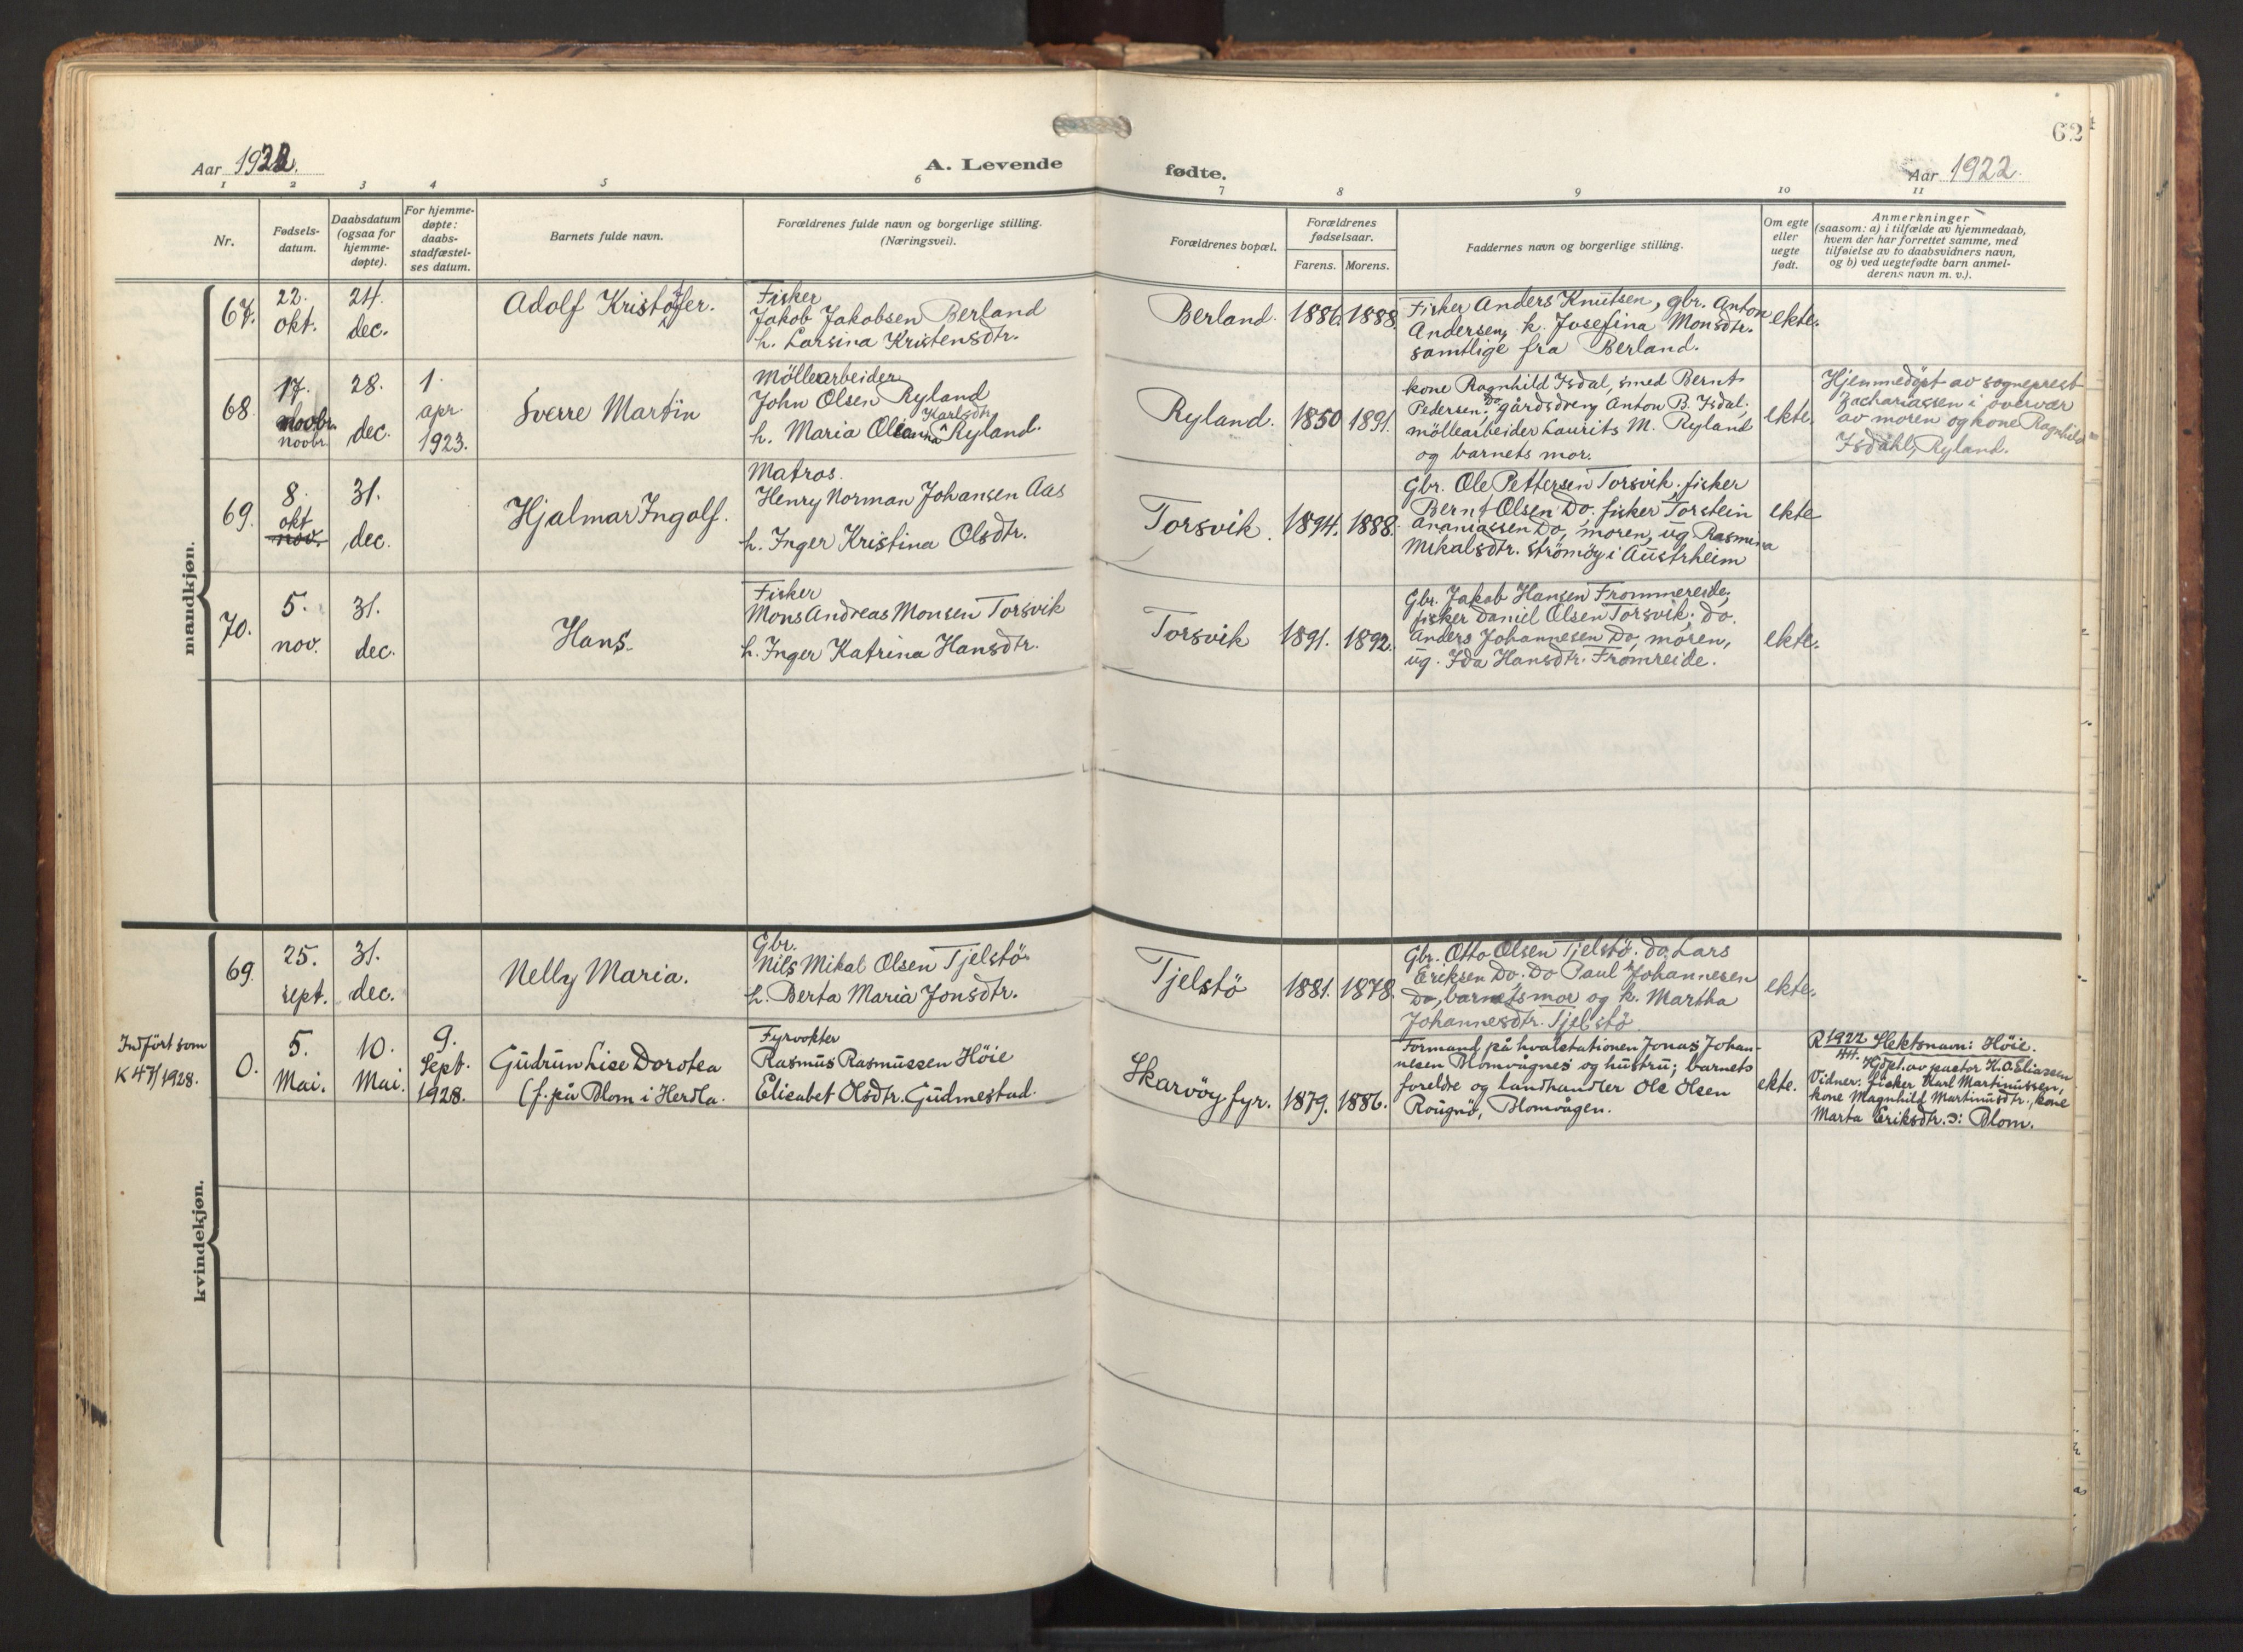 62
Aar 1922.
A. Levende
fødte.
Aar 1922.
1 2 3 4 5 6 7 8 9 10 11
Nr.
Fødsels-
datum.
Daabsdatum
(ogsaa for
hjemme-
døpte).
For hjemme-
døpte:
daabs-
stadfæstel-
ses datum.
Barnets fulde navn.
Forældrenes fulde navn og borgerlige stilling.
(Næringsvei).
Forældrenes bopæl.
Forældrenes
fødselsaar.
Farens. Morens.
Faddernes navn og borgerlige stilling.
Om egte
eller
uegte
født.
Anmerkninger
(saasom: a) i tilfælde av hjemmedaab,
hvem der har forrettet samme, med
tilføielse av to daabsvidners navn,
og b) ved uegtefødte barn anmel-
derens navn m. v.).
mandkjøn.
67.
22.
okt.
24.
dec.
Adolf Kristofer.
Fisker
Jakob Jakobsen Berland
h. Larsina Kristensdtr.
Berland.
1886.
1888.
Fisker Anders Knutsen, gbr. Anton
Andersen, k. Josefina Monsdtr.
samtlige fra Berland.
ekte.
68.
17.
noobr.
28.
dec.
1.
apr.
1923.
Sverre Martin
Möllearbeider
John Olsen Ryland
Karlsdtr
h. Maria Oleanna Ryland.
Ryland.
1850
1891.
kone Ragnhild Isdal, smed Bernt
Pedersen, Do, gårdsdreng Anton B. Isdal,
möllearbeider Laurits M. Ryland
og barnets mor.
ekte.
Hjemmedöpt av sogneprest
Zachariassen i overvær
av moren og kone Ragnhild
Isdahl, Ryland.
69.
8.
okt
nov.
31.
dec.
Hjalmar Ingolf.
Matros.
Henry Norman Johansen Aas
h. Inger Kristina Olsdtr.
Torsvik.
1894.
1888.
Gbr. Ole Pettersen Torsvik. fisker
Bernt Olsen Do. fisker Torstein
Ananiassen Do, moren, ug. Rasmina
Mikalsdtr. Strömöy i Austrheim
ekte
70.
5.
nov.
31.
dec.
Hans.
Fisker
Mons Andreas Monsen Torsvik
h. Inger Katrina Hansdtr.
Torsvik
1891.
1892.
Gbr. Jakob Hansen Frommereide;
fisker Daniel Olsen Torsvik; do.
Anders Johannesen Do, moren,
ug. Ida Hansdtr. Fromreide.
ekte.
kvindekjøn.
69.
25.
sept.
31.
dec.
Nelly Maria.
Gbr.
Nils Mikal Olsen Tjelstö.
h. Berta Maria Jonsdtr.
Tjelstö
1881.
1878.
Gbr. Otto Olsen Tjelstö. do Lars
Eriksen Do; Do Paul Johannesen
Do, barnets mor og k. Martha
Johannesdtr. Tjelstö
ekte.
Indfört som
K 47/1928.
0.
5.
Mai.
10.
Mai.
9.
Sept.
1928.
Gudrun Lise Dorotea
(f. på Blom i Herdla.
Fyrvokter
Rasmus Rasmussen Höie
Elisabet Olsdtr. Gudmestad.
Skarvöy fyr.
1879.
1886.
Formand på hvalstationen Jonas Johan-
nesen Blomvågnes og hustru; barnets
forelde og landhandler Ole Olsen
Rougnö, Blomvågen.
ekte.
R 1922 Slektsnavn: Höie.
44. Hjdpt. av pastor K. O. Eliassen
Vidner: fisker Karl Martinussen,
kone Magnhild Martinusdtr., kone
Marta Eriksdtr. ɔ: Blom.